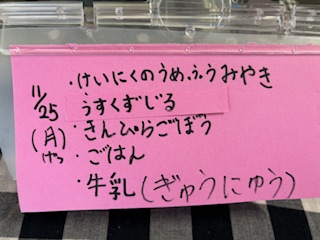 11/25
(月)
げつ
・けいにくのうめふうみやき
うすくずじる
・きんぴらごぼう
・ごはん
・牛乳(ぎゅうにゅう)